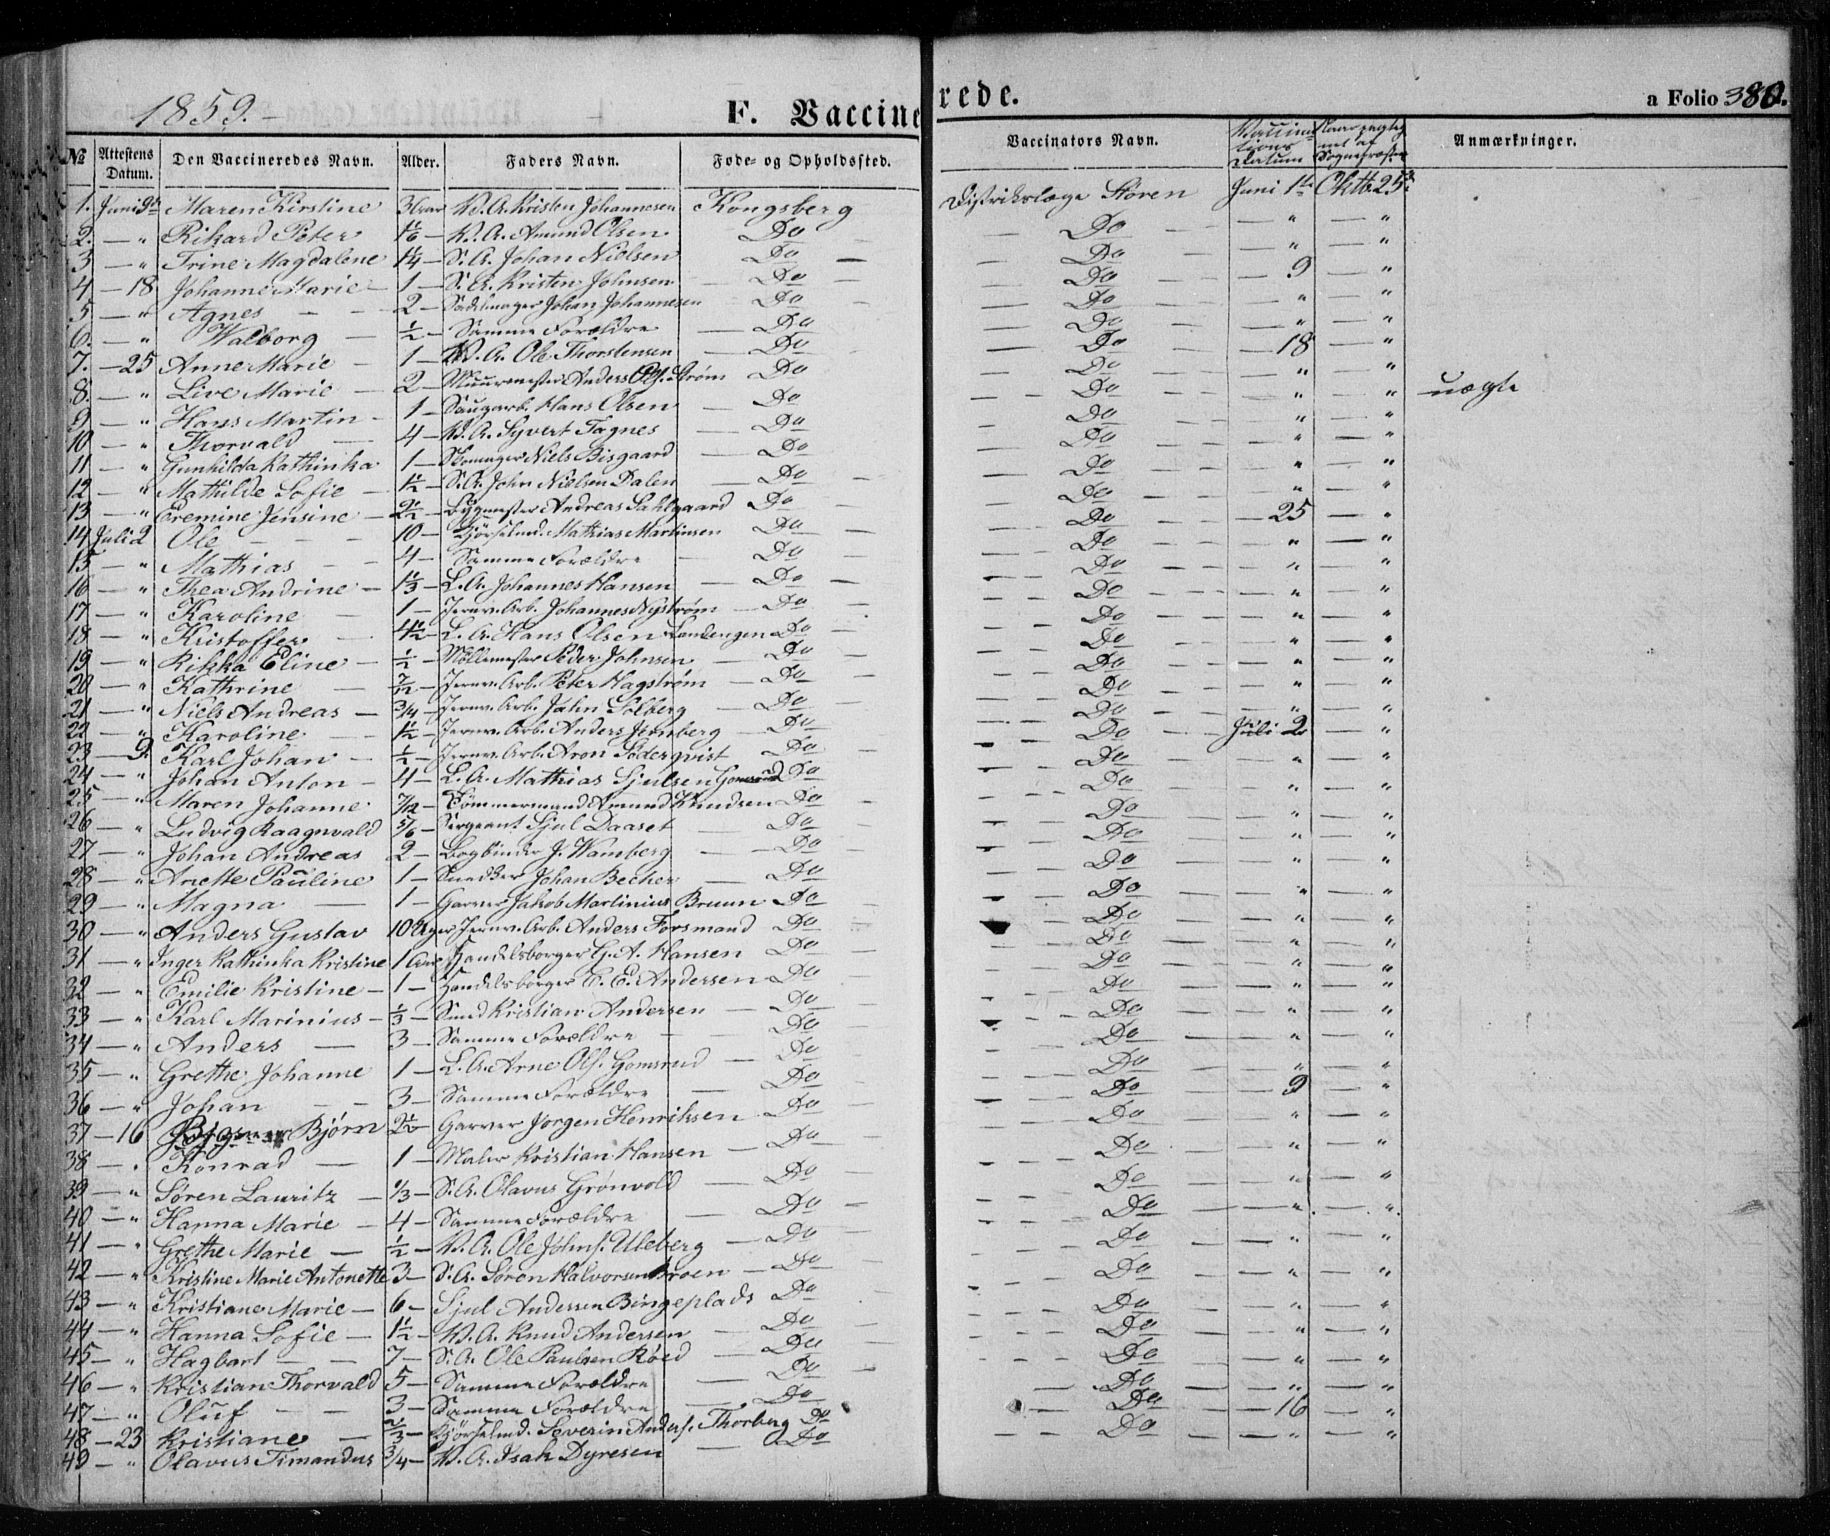 1859.
F. Vaccinerede.
a Folio 380.
№ Attestens Datum. Den Vaccineredes Navn. Alder. Faders Navn. Føde- og Opholdssted. Vaccinators Navn. Vaccinations Datum Anmærkninger.
1. Juni 9de Maren Kirstine 3 Aar V. A. Kristen Johannesen Kongsberg Distriktslæge Støren Juni 1ste Oktb. 25de
2. — " Rikard Peter 1 1/6 — V. A. Amund Olsen Do — Do — " — "
3 — " Trine Magdalene 1 1/4 — S. A. Johan Nielsen Do — Do — " — "
4 — 18 Johanne Marie 1 — S. A. Kristen Johnsen Do — Do — 9 — "
5 — " Agnes 2 — Sadelmager Johan Johannesen Do — Do — " — "
6. — " Walborg 1/2 — Samme Forældre Do — Do — " — "
7. — 25 Anne Marie 1 — V. A. Ole Thorstensen Do — Do — 18 — "
8. — " Live Marie 2 — Muurmester Anders Ols. Strøm Do — Do — " — "
9 — " Hans Martin 1 — Saugarb. Hans Olsen Do — Do — " — " uægte
10 — " Thorvald 4 — V. A. Syvert Tagnes Do — Do — " — "
11 — " Gunhilda Kathinka 1 — Skomager Niels Bisgaard Do — Do — " — "
12 — " Mathilde Sofie 1 1/2 — S. A. John Nielsen Dalen Do — Do — " — "
13 — " Eremine Jensine 2 1/2 — Bygmester Andreas Dahlgaard Do — Do — " — "
14 Juli 2 Ole 10 — Kjørselmd. Mathias Martinsen Do — Do — 25 — "
15 — " Mathias 4 — Samme Forældre Do — Do — " — "
16 — " Thea Andrine 1 1/3 — L. A. Johannes Hansen Do — Do — " — "
17 — " Karoline 1 — Jernv. Arb. Johannes Nystrøm Do — Do — " — "
18 — " Kristoffer 4 1/2 — L. A. Hans Olsen Landengen Do — Do — " — "
19 — " Rikka Eline 1/2 — Møllemester Peder Johnsen Do — Do — " — "
20 — " Kathrine 7/12 — Jernv. Arb. Peter Hagstrøm Do — Do — " — "
21 — " Niels Andreas 3/4 — Jernv. Arb. Jahn Solberg Do — Do — " — "
22 — " Karoline 1 1/2 — Jernv. Arb. Anders Jernberg Do — Do — " — "
23 — 9 Karl Johan 1/2 — Jernv. Arb. Aron Söderqvist Do — Do — Juli 2 — "
24 — " Johan Anton 4 — L. A. Mathias Sjulsen Gomsrud Do — Do — " — "
25 — " Maren Johanne 7/12 — Tømmermand Amund Knudsen Do — Do — " — "
26 — " Ludvig Raagnvald 5/6 — Sergeant Sjul Daaset Do — Do — " — "
27 — " Johan Andreas 2 — Bogbinder J. Wamberg Do — Do — " — "
28 — " Anette Pauline 1 — Snedker Johan Becher Do — Do — " — "
29 — " Magna 1 — Garver Jakob Martinius Bruun Do — Do — " — "
30 — " Anders Gustav 10 Uger Jernv. Arb. Anders Forsmand Do — Do — " — "
31 — " Inger Kathinka Kristine 1 Aar Handelsborger G. A. Hansen Do — Do — " — "
32 — " Emilie Kristine 1 — Handelsborger C. E. Andersen Do — Do — " — "
33 — " Karl Marinius 1/3 — Smed Kristian Andersen Do — Do — " — "
34 — " Anders 3 — Samme Forældre Do — Do — " — "
35 — " Grethe Johanne 1 — L. A. Arne Ols. Gomsrud Do — Do — " — "
36 — " Johan 3 — Samme Forældre Do — Do — " — "
37 — 16 Bjørn 2 1/2 — Garver Jørgen Henriksen Do — Do — 9 — "
38 — " Konrad 1 — Maler Kristian Hansen Do — Do — " — "
39 — " Søren Lauritz 1/3 — S. A. Olavus Grønvold Do — Do — " — "
40 — " Hanna Marie 4 — Samme Forældre Do — Do — " — "
41 — " Grethe Marie 1/2 — V. A. Ole Johns. Uleberg Do — Do — " — "
42 — " Kristine Marie Antonette 3 — S. A. Søren Halvorsen Broen Do — Do — " — "
43 — " Kristiane Marie 6 — Sjul Andersen Bingeplads Do — Do — " — "
44 — " Hanna Sofie 1 1/2 — V. A. Knud Andersen Do — Do — " — "
45 — " Hagbart 7 — S. A. Ole Paulsen Røed Do — Do — " — "
46 — " Kristian Thorvald 5 — Samme Forældre Do — Do — " — "
47 — " Oluf 3 — Samme Forældre Do — Do — " — "
48 — 23 Kristiane 2/3 — Kjørselmd. Severin Anders. Thorberg Do — Do — 16 — "
49 — " Olavus Timandus 3/4 — V. A. Isak Dyresen Do — Do — " — "